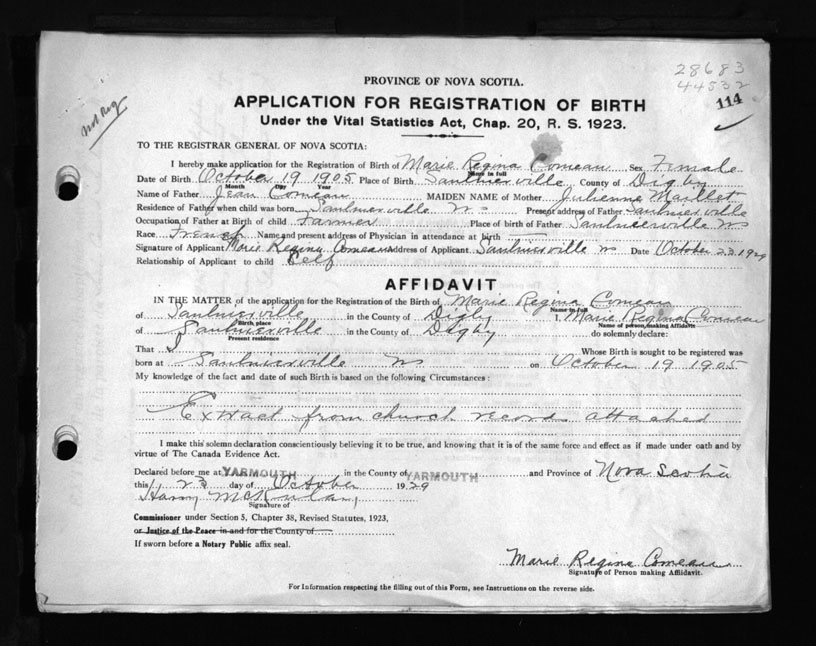 28683
44532
114
Not Reg
PROVINCE OF NOVA SCOTIA.
APPLICATION FOR REGISTRATION OF BIRTH
Under the Vital Statistics Act, Chap. 20, R. S. 1923.
TO THE REGISTRAR GENERAL OF NOVA SCOTIA:
I hereby make application for the Registration of Birth of Marie Regina Comeau Sex Female
Name in full
Date of Birth October 19 1905 Place of Birth Saulnierville County of Digby
Month Day Year
Name of Father Jean Comeau MAIDEN NAME of Mother Julienne Maillet
Residence of Father when child was born Saulnierville NS Present address of Father Saulnierville
Occupation of Father at Birth of child Farmer Place of birth of Father Saulnierville NS
Race French Name and present address of Physician in attendance at birth
Signature of Applicant Marie Regina Comeau Address of Applicant Saulnierville NS Date October 23 1929
Relationship of Applicant to child Self
AFFIDAVIT
IN THE MATTER of the application for the Registration of the Birth of Marie Regina Comeau
Name in full
of Saulnierville in the County of Digby I, Marie Regina Comeau
Birth place Name of person making Affidavit
of Saulnierville in the County of Digby do solemnly declare:
Present residence
That I Whose Birth is sought to be registered was
born at Saulnierville NS on October 19 1905
My knowledge of the fact and date of such Birth is based on the following Circumstances:
Extract from church records attached
I make this solemn declaration conscientiously believing it to be true, and knowing that it is of the same force and effect as if made under oath and by
virtue of The Canada Evidence Act.
Declared before me at YARMOUTH in the County of YARMOUTH and Province of Nova Scotia
this 23 day of October 1929
Harry
Signature of
Commissioner under Section 5, Chapter 38, Revised Statutes, 1923,
or Justice of the Peace in and for the County of
If sworn before a Notary Public affix seal.
Marie Regina Comeau
Signature of Person making Affidavit.
For Information respecting the filling out of this Form, see Instructions on the reverse side.